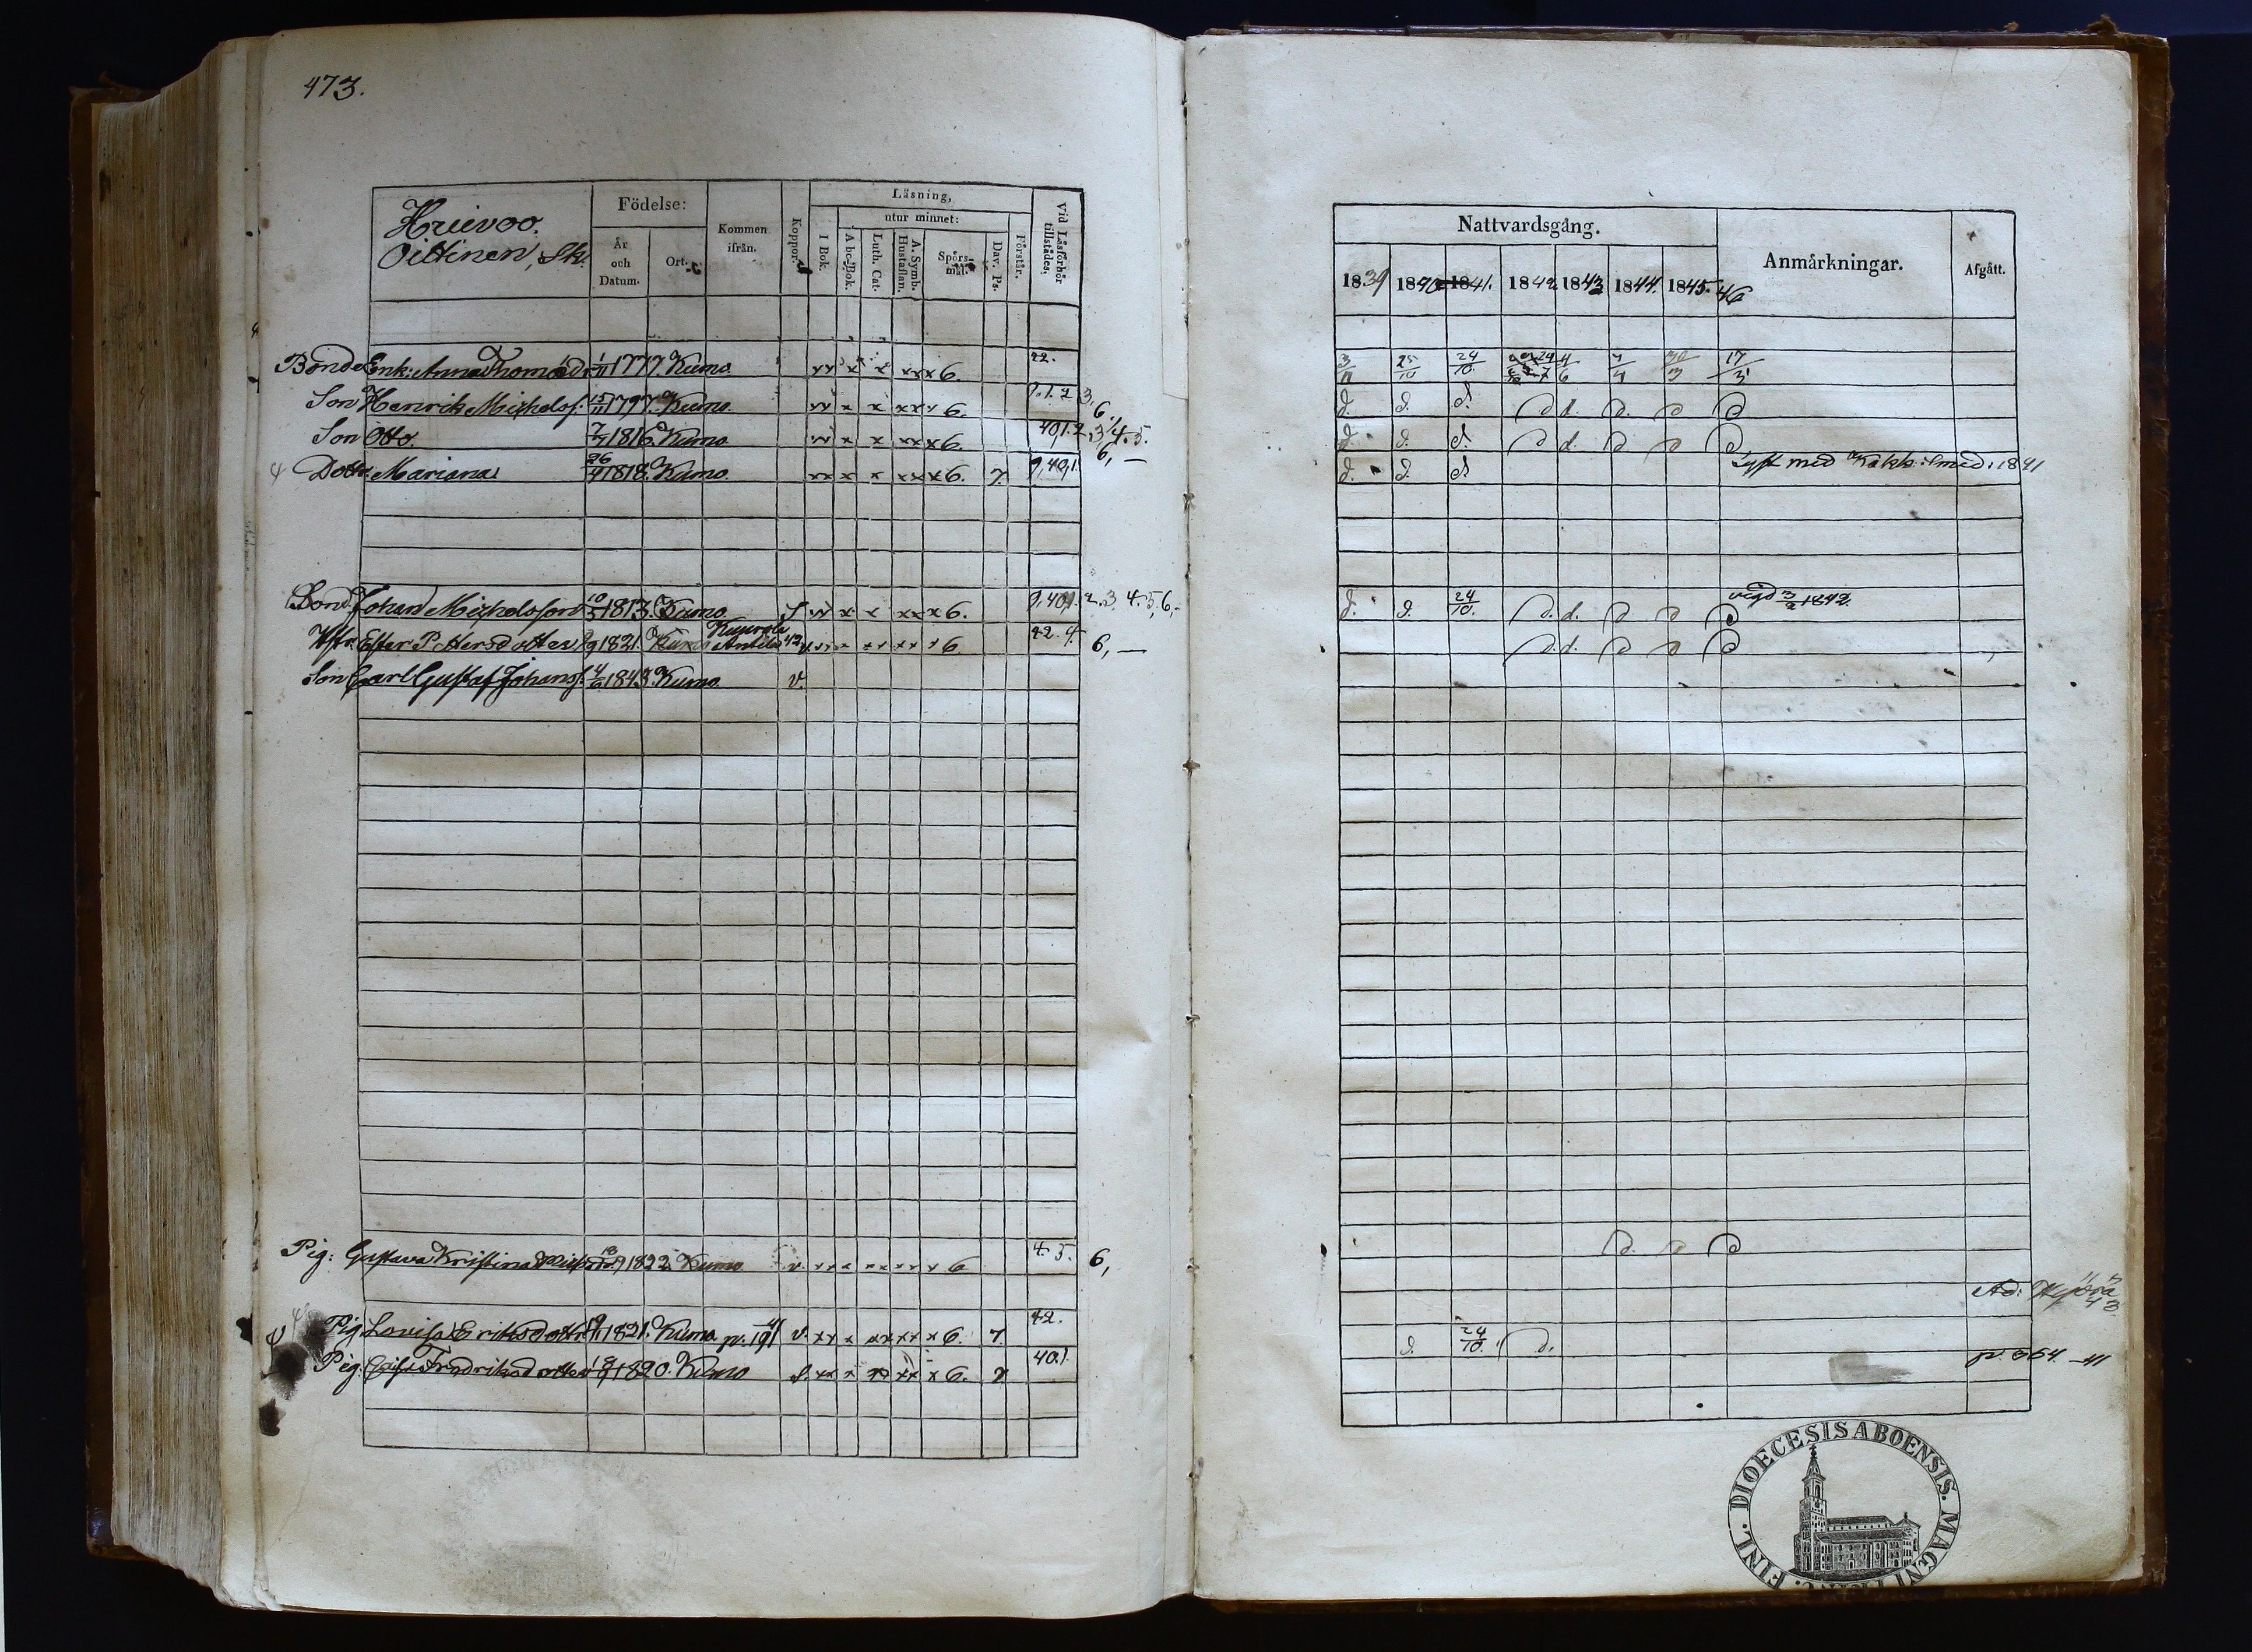 473.
Huivoo.
Oittinen, Sk.
Födelse:
År och Datum.
Ort.
Kommen ifrån.
Koppor.
Läsning,
utur minnet:
I Bok.
A bc-Bok.
Luth. Cat.
A. Symb. Hustaflan.
Spörsmål.
Dav. Ps.
Förstår.
Vid Läsförhör tillstädes,
Bonde Enk: Anna Thomæd. 1/11 1777. Kumo. xx x x xxx 6. 42.
Son Henrik Michelss. 15/11 1797. Kumo. xx x x xxx 6. 9.1.2 3, 6.
Son Otto. 7/7 1816. Kumo xx x x xxx 6. 40,1.2.3,4.5. 6, —
Dottr. Mariana 26/4 1818. Kumo. xx x x xxx 6. 7. 9,40,1.
Bond. Johan Michelsson 10/5 1813. Kumo S xx x x xxx 6. 9,401.2.3,4.5,6,-
Hstr. Ester P ttersdotter 9 1821. Kumo Anttila 42 v. xx x xx xx x 6 42.4. 6, —
Son Carl Gustaf Johanss. 4/6 1843. Kumo v.
Pig: Gustava Kristina 1822. Kumo v. xx x x x xx x 6 4.5. 6,
Pig Lovisa Eriksdottr. 1821. Kumo p. 191 41 v. xx x xx xx x 6. 7 42.
Pig. Fredriksdotter 1820. Kumo S. xx x xx xx x 6. 7 40.1
Nattvardsgång.
Anmärkningar.
Afgått.
1839 1840 1841. 1842 1843 1844. 1845. 46
3/11 25/10 24/10. 4/6 7/4 30/3 17/3
d. d. d. d d. d. d d
d. d. d. d d. d d d
d. d. d lyst med Kakk: smed: 1841
d. d. 24/10. d. d. d d d vigd 3/2 1842.
d. d. d d d
d. d d
Ad:
d. 24/10. d.
p. 364. -41
FINL. DIOECESIS ABOENSIS. MAGNI